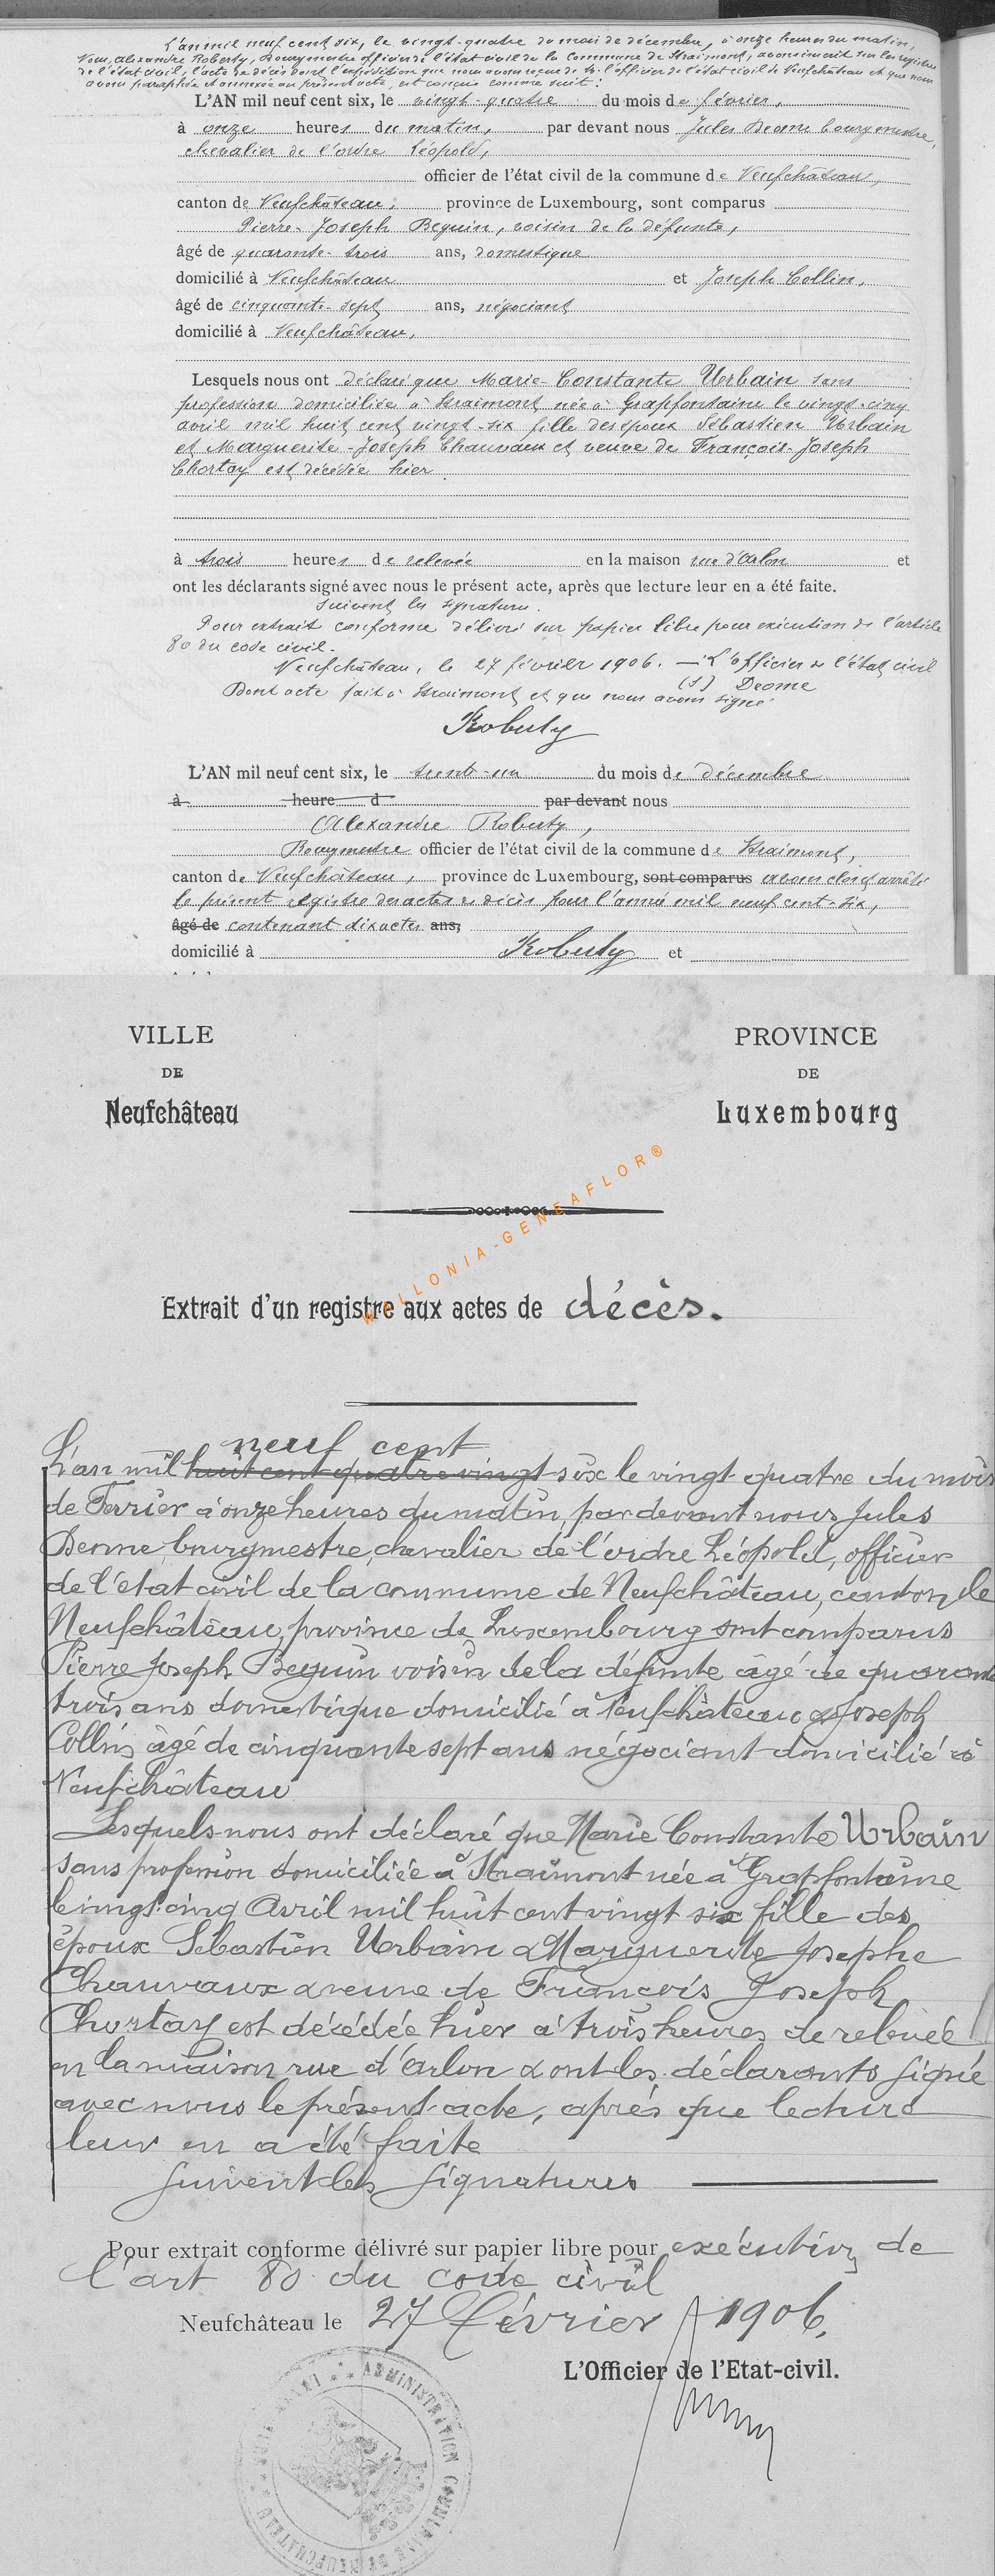 L'an mil neuf cent six, le vingt-quatre du mois de décembre, à onze heures du matin,
Nous, Alexandre Roberty, Bourgmestre officier de l'état civil de la commune de Straimont, avons inscrit sur les registres
de l'état civil, l'acte de décès dont l'expédition que nous avons reçue de Mr. l'officier de l'état civil de Neufchâteau et que nous
avons paraphée et annexée au présent acte, est conçue comme suit :
L'AN mil neuf cent six, le vingt-quatre du mois de février,
à onze heures du matin, par devant nous Jules Deome bourgmestre,
chevalier de l'ordre Léopold,
officier de l'état civil de la commune de Neufchâteau,
canton de Neufchâteau, province de Luxembourg, sont comparus
Pierre-Joseph Bequin, voisin de la défunte,
âgé de quarante-trois ans, domestique
domicilié à Neufchâteau et Joseph Collin,
âgé de cinquante-sept ans, négociant
domicilié à Neufchâteau,
Lesquels nous ont déclaré que Marie-Constante Urbain sans
profession domiciliée à Straimont née à Grapfontaine le vingt-cinq
avril mil huit cent vingt-six fille des époux Sébastien Urbain
et Marguerite-Joseph Chauvaux et veuve de François-Joseph
Chortay est décédée hier
à trois heures de relevée en la maison rue d'Arlon et
ont les déclarants signé avec nous le présent acte, après que lecture leur en a été faite.
suivent les signatures.
Pour extrait conforme délivré sur papier libre pour exécution de l'article
80 du code civil.
Neufchâteau, le 27 février 1906. — L'officier de l'état civil
(s) Deome
Dont acte fait à Straimont et que nous avons signé
Roberty
L'AN mil neuf cent six, le trente-un du mois de décembre
à heure d par devant nous
Alexandre Roberty,
Bourgmestre officier de l'état civil de la commune de Straimont,
canton de Neufchâteau, province de Luxembourg, sont comparus avons clos et arrêté
le présent registre des actes de décès pour l'année mil neuf cent-six,
âgé de contenant dix actes ans,
domicilié à Roberty et
VILLE
DE
Neufchâteau
PROVINCE
DE
Luxembourg
WALLONIA-GENEAFLOR®
Extrait d'un registre aux actes de décès.
neuf cent
L'an mil huit cent quatre-vingt six le vingt quatre du mois
de Fevrier à onze heures du matin, par devant nous Jules
Deome, bourgmestre, chevalier de l'ordre Léopold, officier
de l'état civil de la commune de Neufchâteau, canton de
Neufchâteau, province de Luxembourg sont comparus
Pierre Joseph Bequin voisin de la défunte âgé de quarante
trois ans domestique domicilié à Neufchâteau & Joseph
Collin âgé de cinquante sept ans négociant domicilié à
Neufchâteau
Lesquels nous ont déclaré que Marie Constante Urbain
sans profession domiciliée à Straimont née à Grapfontaine
le vingt cinq Avril mil huit cent vingt six fille des
époux Sébastien Urbain & Marguerite Josephe
Chauvaux & veuve de François Joseph
Chortay est décédée hier à trois heures de relevée
en la maison rue d'Arlon & ont les déclarants signé
avec nous le présent acte, après que lecture
leur en a été faite
suivent les signatures
Pour extrait conforme délivré sur papier libre pour exécution de
l'art 80 du code civil
Neufchâteau le 27 Février 1906.
L'Officier de l'Etat-civil.
ADMINISTRATION COMMUNALE DE NEUFCHÂTEAU